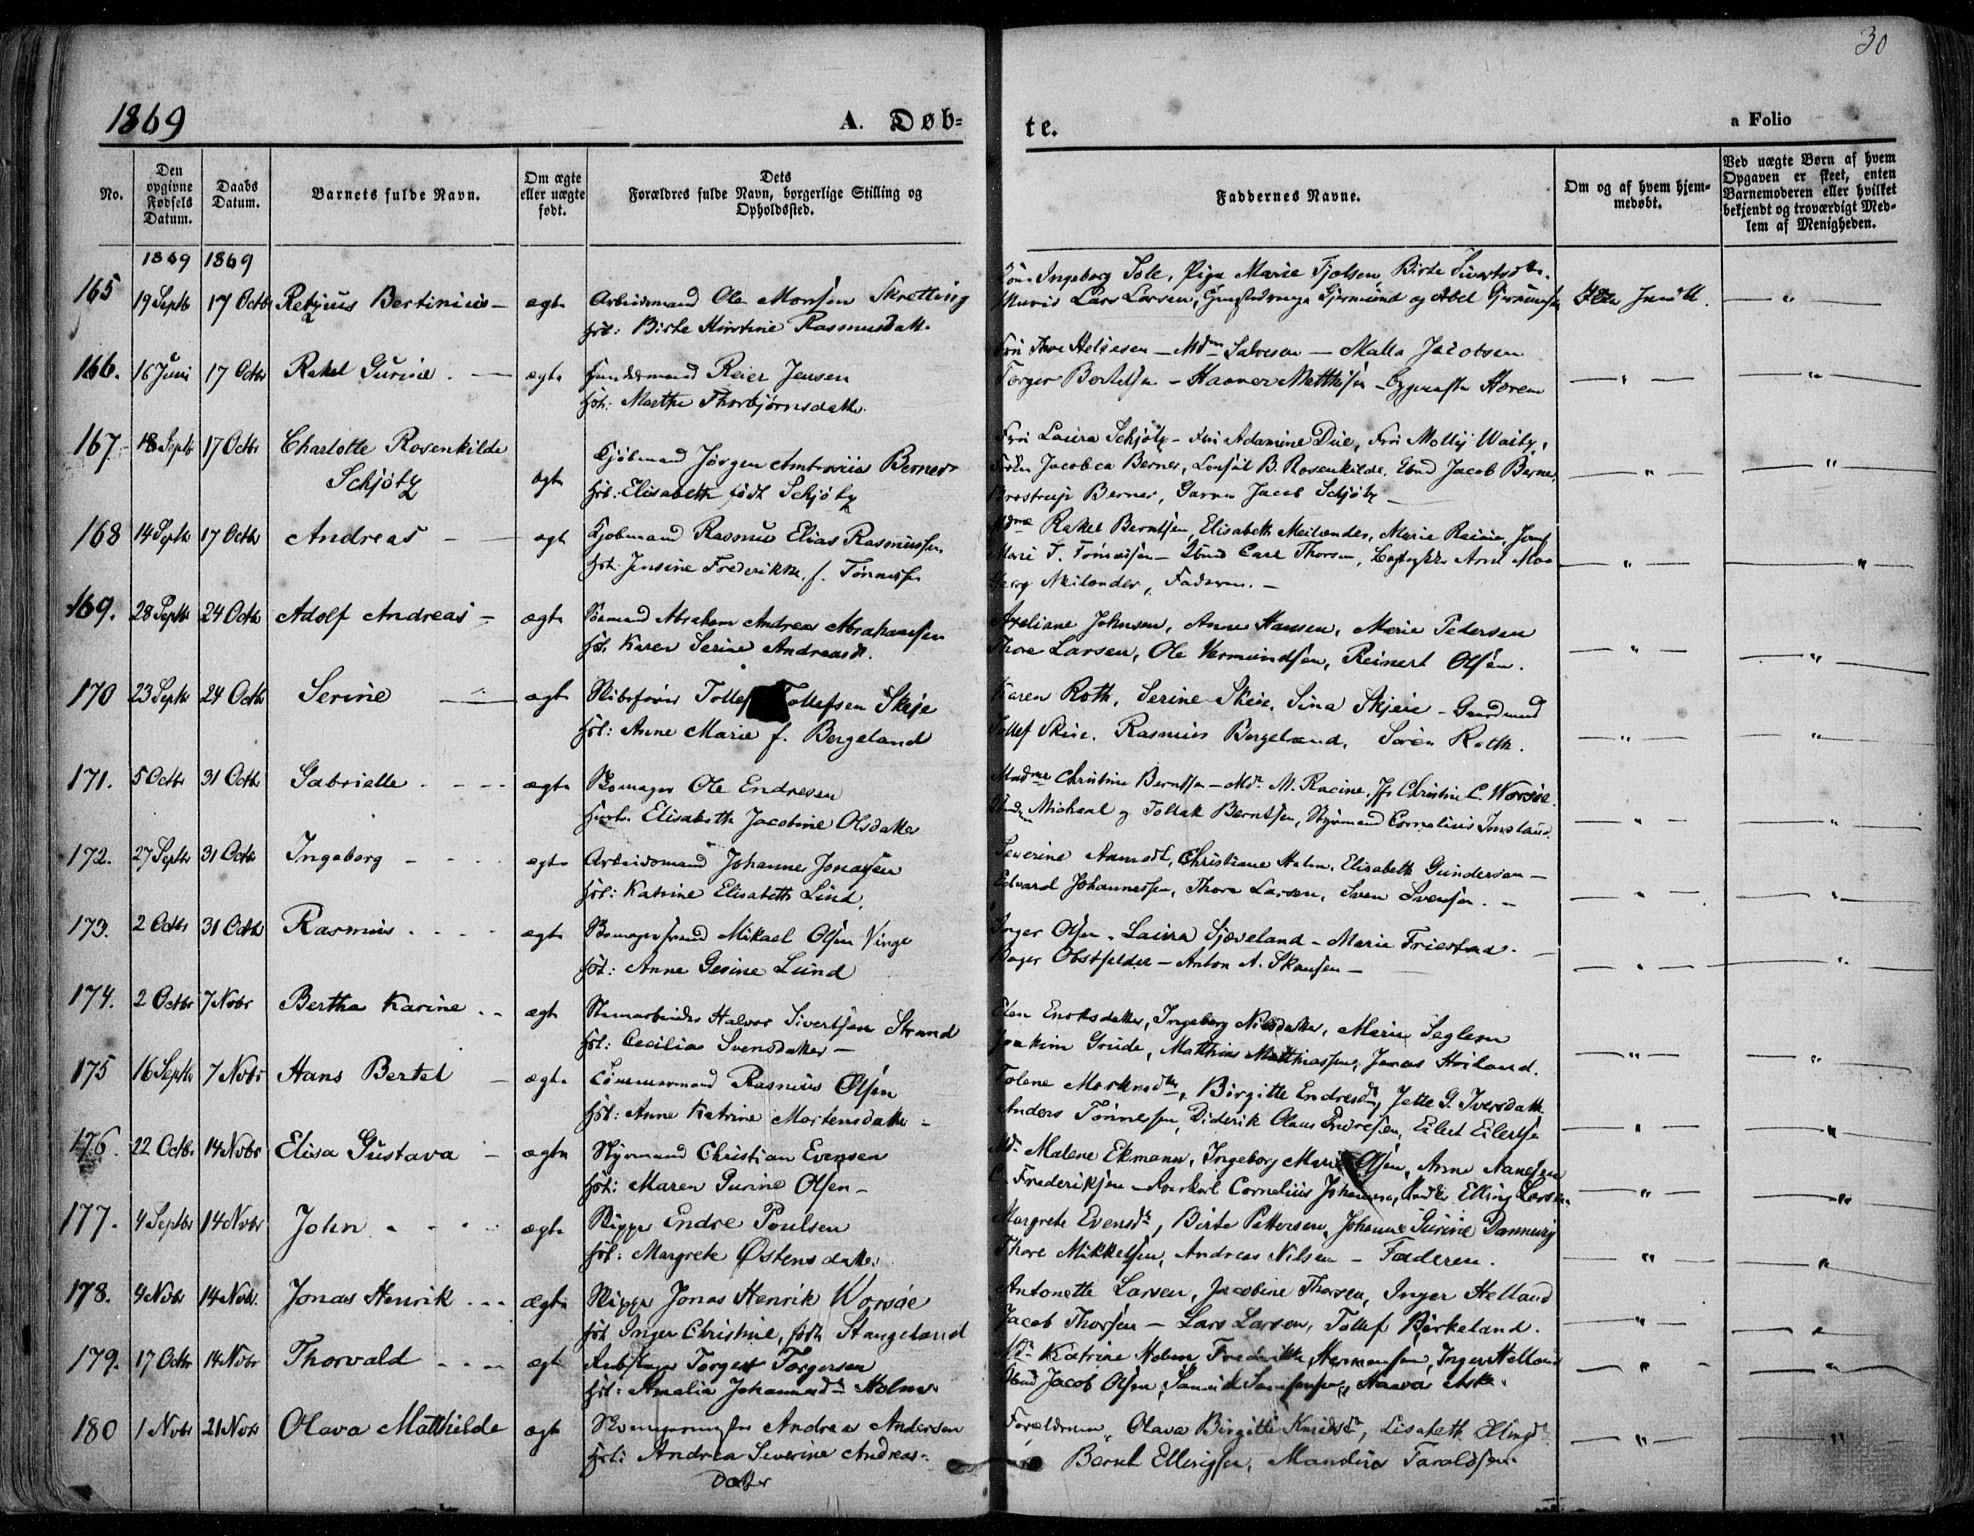 30
1869
A. Døb=
te.
a Folio
No.
Den opgivne Fødsels Datum.
Daabs Datum.
Barnets fulde Navn.
Om ægte eller uægte født.
Dets Forældres fulde Navn, borgerlige Stilling og Opholdssted.
Faddernes Navne.
Om og af hvem hjemmedøbt.
Ved uægte Børn af hvem Opgaven er skeet, enten Barnemoderen eller hvilket bekjendt og troværdigt Medlem af Menigheden.
1869 1869
165 19 Septb 17 Octb Retzius Bertinius — ægte Arbeidsmand Ole Monsen Skretting
Ingeborg Sele, Pige Marie Tjølsen, Birte Sivertsdtr.
Hst: Birte Kirstine Rasmusdatt.
Lars Larsen, Gjermund og Abel
166. 16 Juni 17 Octbr Rakel Gurine — ægte Reier Jensen
Helliesen — Mdm Salvesen — Malla Jacobsen
Hst: Marthe Thorbjørnsdatter.
Torger Bertelsen — Matthisen
167. 18 Septb 17 Octbr Charlotte Rosenkilde Schjøtz ægte Kjøbmand Jørgen Ambrosius Berner
Hst: Elisabeth født Schjøtz
Frøi Laura Schjøtz — Frøi Adamine Due, Frøi Molly
Jacobea Berner, Consul B. Rosenkilde, Jacob Berner,
Brostrup Berner, Jacob Schjøtz —
168 14 Septb 17 Octbr Andreas — ægte Kjøbmand Rasmus Elias Rasmussen
Hst: Jensine Frederikke f. Tønnesen
Rakel Berntsen, Elisabeth Meilænder, Marie Racine, Jomf
Marie T. Tønnesen — Carl Thorsen,
Georg Meilænder, Faderen. —
169. 28 Septb 24 Octbr Adolf Andreas — ægte Sømand Abraham Andreas Abrahamsen
Hst. Karen Serine Andreasdt.
Axeliane Johnsen, Anne Hansen, Marie Pedersen
Thore Larsen, Ole Vermundsen, Reinert Olsen.
170 23 Septb 24 Octbr Serine — ægte Skibsfører Tollef Tollefsen Skeje
Hst: Anne Marie f. Bergeland
Karen Roth, Serine Skeie, Sina Skjeie — Gaardmand
Tollef Skeie, Rasmus Bergeland, Søren Roth.
171. 5 Octbr 31 Octbr Gabrielle ægte Skomager Ole Endresen
Hust. Elisabeth Jacobine Olsdatter
Madme Christine Berntsen — Md. M. Racine, Jfr Christine C. Worsøe.
Michael og Tollak Berntsen, Styrmand Cornelius Imsland
172. 27 Septbr 31 Octbr Ingeborg ægte Arbeidsmand Johannes Jonassen
Hst: Katrine Elisabeth Lind.
Severine Aamodt, Christiane Holm, Elisabeth Gundersen —
Edvard Johannessen, Thore Larsen, Sven Svensen. —
173. 2 Octbr 31 Octbr Rasmus ægte Skomagersvend Mikael Olsen Vinge
Hst: Anne Gesine Lund
Inger Olsen — Laura Sjæveland — Marie Friestad —
Bager Obstfelder — Anton A. Skansen —
174. 2 Octbr 7 Novbr Bertha Karine ægte Stenarbeider Halvor Sivertsen Strand
Hst: Cecilia Svensdatter —
Elen Enoksdatter, Ingeborg Nilsdatter, Marie Seglem
Joakim Grude, Matthias Matthiassen, Jonas Høiland.
175 16 Septbr 7 Novbr Hans Bertel — ægte Tømmermand Rasmus Olsen
Hst: Anne Katrine Mortensdatter —
Tolene, Birgitte Endresdt, Jette G. Iversdatt
Anders Tønnessen, Diderik Olaus Endresen, Eilert Eilertsen
176. 22 Octbr 14 Novbr Elisa Gustava — ægte Styrmand Christian Evensen
Hst: Maren Gurine Olsen —
Md. Malene Ekmann, Ingeborg Marie Olsen, Anne
Frederiksen — Cornelius Johannesen, Elling Larsen
177. 4 Septbr 14 Novbr John ægte Skipper Endre Poulsen
Hst: Margrete Østensdatter
Margrete Evensdt, Birte Pettersen, Johanne Gurine Dannevig
Thore Mikkelsen, Andreas Nilsen — Faderen.
178. 4 Novbr 14 Novbr Jonas Henrik ægte Skipper Jonas Henrik Worsøe
Hst. Inger Christine, født Stangeland
Antonette Larsen, Jacobine Thorsen, Inger Helland
Jacob Thorsen — Lars Larsen, Tollef Birkeland.
179. 17 Octbr 14 Novbr Thorvald ægte Torger Torgersen
Hst: Amalia Johannesdt Holme
Md. Katrine Holm Fredrikke Hermansen, Inger Helland
Jacob Olsen, Aske.
180 1 Novbr 21 Novbr Olava Mathilde ægte Andreas Andersen
Hst: Andrea Severine Andreas=
Datter
Forældrene, Olava Birgitte Knudsdt, Lisabeth
Bernt Ellingsen, Mandius Taraldsen.